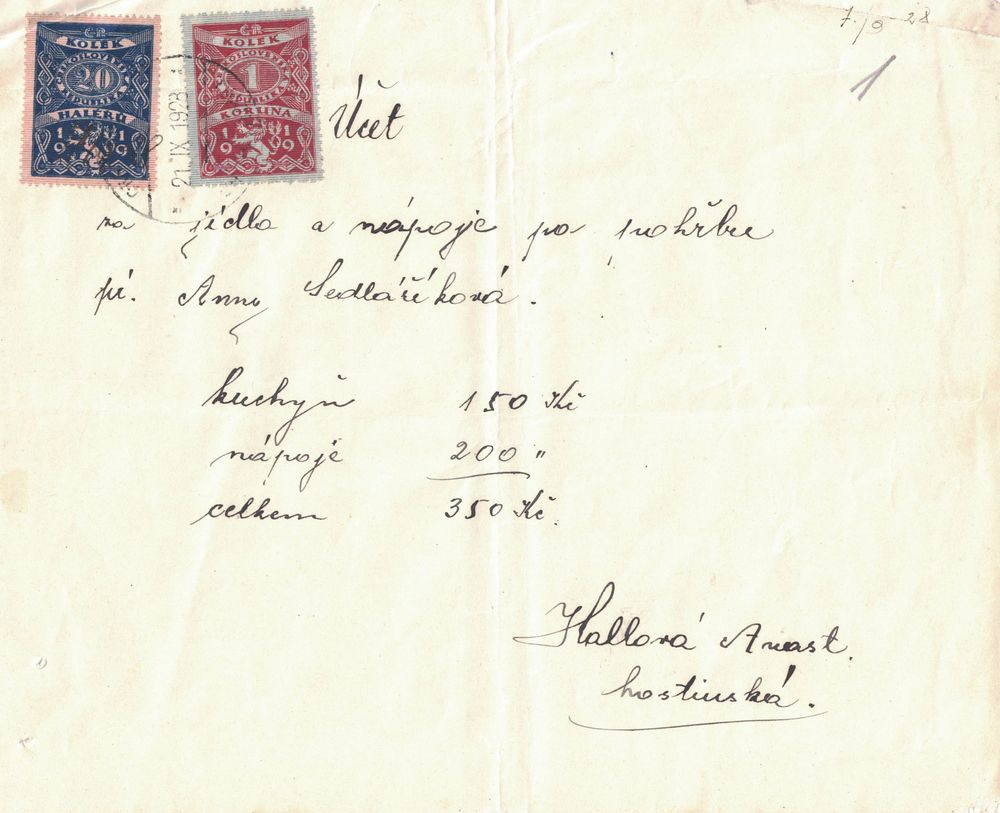 7./9 28
1
ČR
KOLEK
ČESKOSLOVENSKÁ
20
REPUBLIKA
HALÉŘŮ
1919
ČR
KOLEK
ČESKOSLOVENSKÁ
1
REPUBLIKA
KORUNA
1919
21.IX.1928
Účet
za jídla a nápoje po pohřbu
pí. Anny Sedláříková.
kuchyň 150 Kč
nápoje 200 "
celkem 350 Kč.
Hallová Anast.
hostinská.